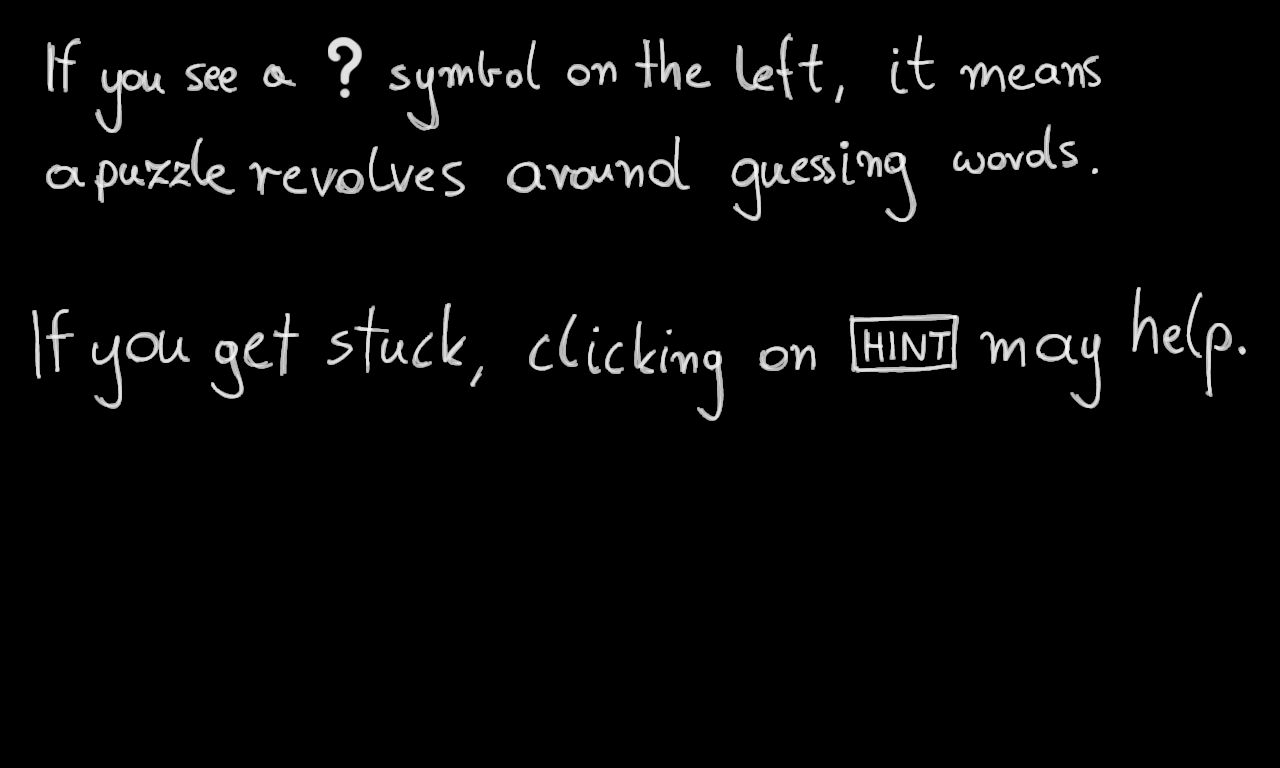 If you see a ? symbol on the left, it means
a puzzle revolves around guessing words.
If you get stuck, clicking on HINT may help.